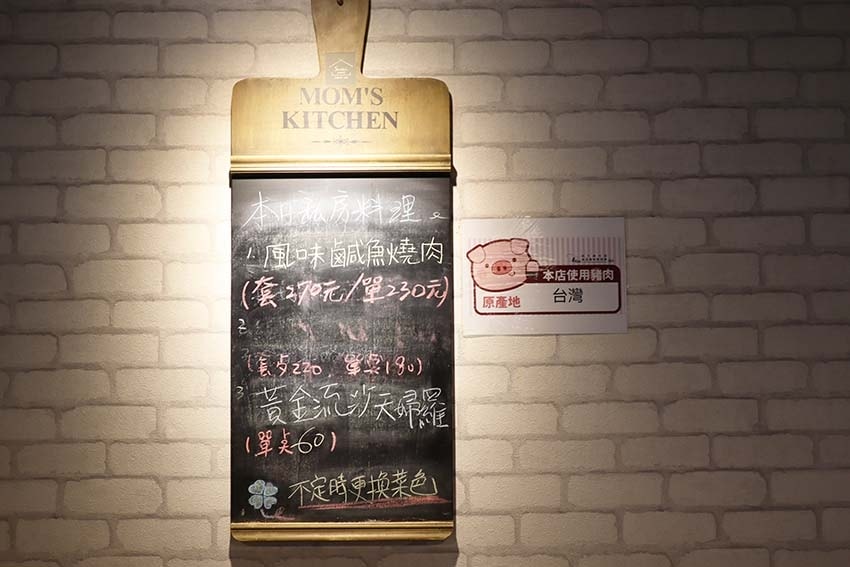 MOM'S
KITCHEN
本日私房料理
1.風味鹹魚燒肉
(套270元/單230元)
2
(套点220.單点180)
3 黃金流沙天婦羅
(單点60)
不定時更換菜色
本店使用豬肉
原產地
台灣